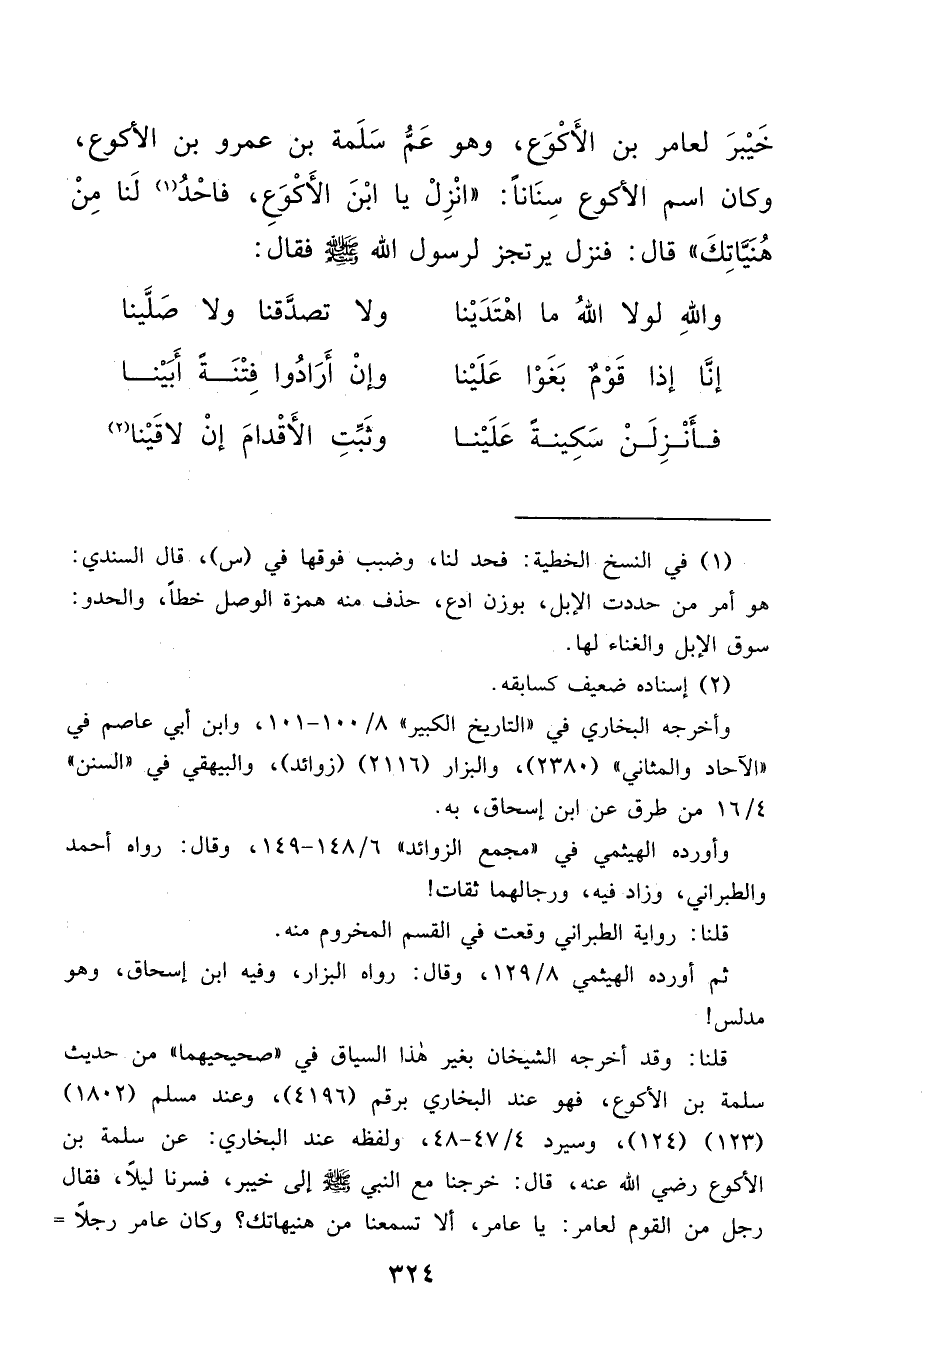 خَيْبرَ لعامر بن الأَكْوَعِ، وهو عَمُّ سَلَمة بن عمرو بن الأكوع،
وكان اسم الأكوع سِنَاناً: «انْزِلْ يا ابْنَ الأَكْوَعِ، فاحْدُ(١) لَنا مِنْ
هُنَيَّاتِكَ» قال: فنزل يرتجز لرسول الله ﷺ فقال:
واللهِ لولا اللهُ ما اهْتَدَيْنا ولا تصدَّقنا ولا صَلَّينا
إنَّا إذا قَوْمٌ بَغَوْا عَلَيْنا وإنْ أَرَادُوا فِتْنَةً أَبَيْنا
فأَنْزِلَنْ سَكِينةً عَلَيْنا وثَبِّتِ الأَقْدامَ إنْ لاقَيْنا(٢)
(١) في النسخ الخطية: فحد لنا، وضبب فوقها في (س)، قال السندي:
هو أمر من حددت الإبل، بوزن ادع، حذف منه همزة الوصل خطاً، والحدو:
سوق الإبل والغناء لها.
(٢) إسناده ضعيف كسابقه.
وأخرجه البخاري في «التاريخ الكبير» ٨/ ١٠٠-١٠١، وابن أبي عاصم في
«الآحاد والمثاني» (٢٣٨٠)، والبزار (٢١١٦) (زوائد)، والبيهقي في «السنن»
٤/ ١٦ من طرق عن ابن إسحاق، به.
وأورده الهيثمي في «مجمع الزوائد» ٦/ ١٤٨-١٤٩، وقال: رواه أحمد
والطبراني، وزاد فيه، ورجالهما ثقات!
قلنا: رواية الطبراني وقعت في القسم المخروم منه.
ثم أورده الهيثمي ٨/ ١٢٩، وقال: رواه البزار، وفيه ابن إسحاق، وهو
مدلس!
قلنا: وقد أخرجه الشيخان بغير هٰذا السياق في «صحيحيهما» من حديث
سلمة بن الأكوع، فهو عند البخاري برقم (٤١٩٦)، وعند مسلم (١٨٠٢)
(١٢٣) (١٢٤)، وسيرد ٤/ ٤٧-٤٨، ولفظه عند البخاري: عن سلمة بن
الأكوع رضي الله عنه، قال: خرجنا مع النبي ﷺ إلى خيبر، فسرنا ليلاً، فقال
رجل من القوم لعامر: يا عامر، ألا تسمعنا من هنيهاتك؟ وكان عامر رجلاً =
٣٢٤